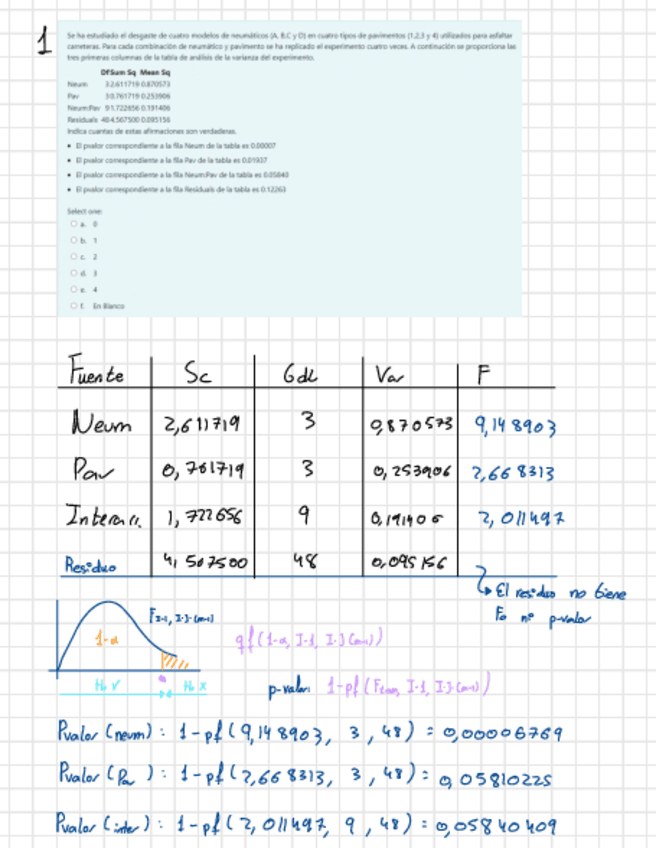 1
Se ha estudiado el desgaste de cuatro modelos de neumáticos (A, B,C y D) en cuatro tipos de pavimentos (1,2,3 y 4) utilizados para asfaltar
carreteras. Para cada combinación de neumático y pavimento se ha replicado el experimento cuatro veces. A continuación se proporciona las
tres primeras columnas de la tabla de análisis de la varianza del experimento.
DfSum Sq Mean Sq
Neum 3 2.611719 0.870573
Pav 3 0.761719 0.253906
Neum:Pav 9 1.722656 0.191406
Residuals 48 4.567500 0.095156
Indica cuantas de estas afirmaciones son verdaderas.
• El pvalor correspondiente a la fila Neum de la tabla es 0.00007
• El pvalor correspondiente a la fila Pav de la tabla es 0.01937
• El pvalor correspondiente a la fila Neum:Pav de la tabla es 0.05840
• El pvalor correspondiente a la fila Residuals de la tabla es 0.12263
Select one:
a. 0
b. 1
c. 2
d. 3
e. 4
f. En Blanco
Fuente Sc Gdl Var F
Neum 2,611719 3 0,870573 9,148903
Pav 0,761719 3 0,253906 2,668313
Interacc. 1,722656 9 0,191406 2,011497
Residuo 4,567500 48 0,095156
El residuo no tiene
Fo ni p-valor
F I-1, I·J·(m-1)
1-α
qf(1-α, I-1, I·J(m-1))
α
H₀ ✓ H₀ X
p-valor: 1-pf(, I-1, I·J(m-1))
Pvalor (neum): 1-pf(9,148903, 3, 48) = 0,00006769
Pvalor (Pav): 1-pf(2,668313, 3, 48) = 0,05810225
Pvalor (inter): 1-pf(2,011497, 9, 48) = 0,05840409